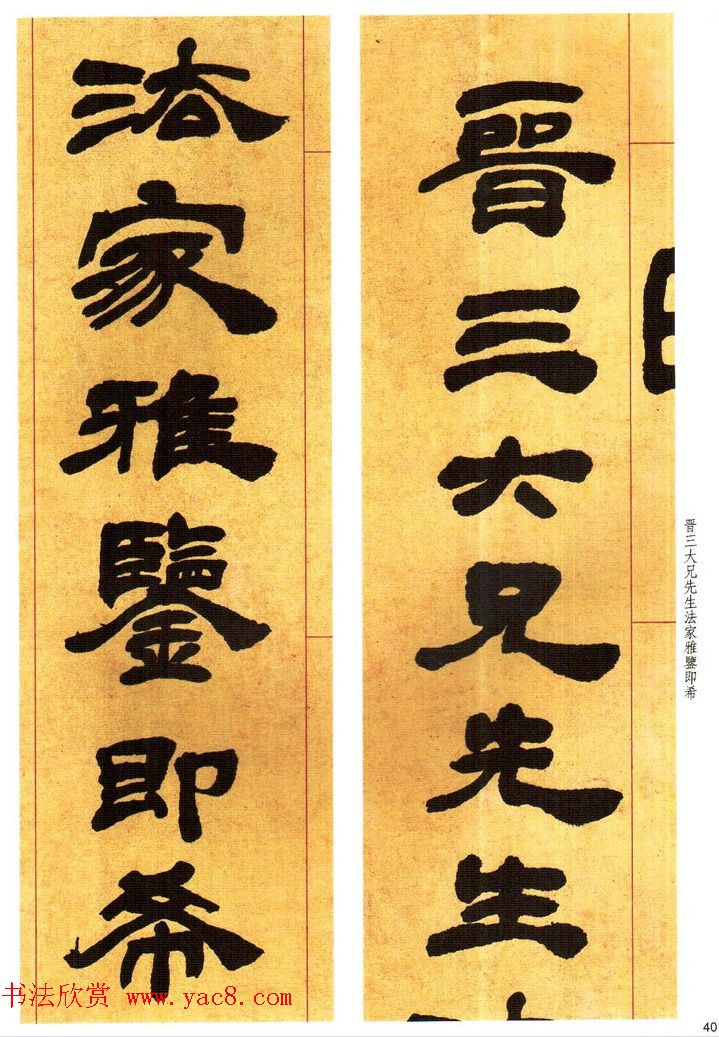 晋三大兄先生
法家雅鑒即希
晋三大兄先生法家雅鑒即希
书法欣赏 www.yac8.com
40